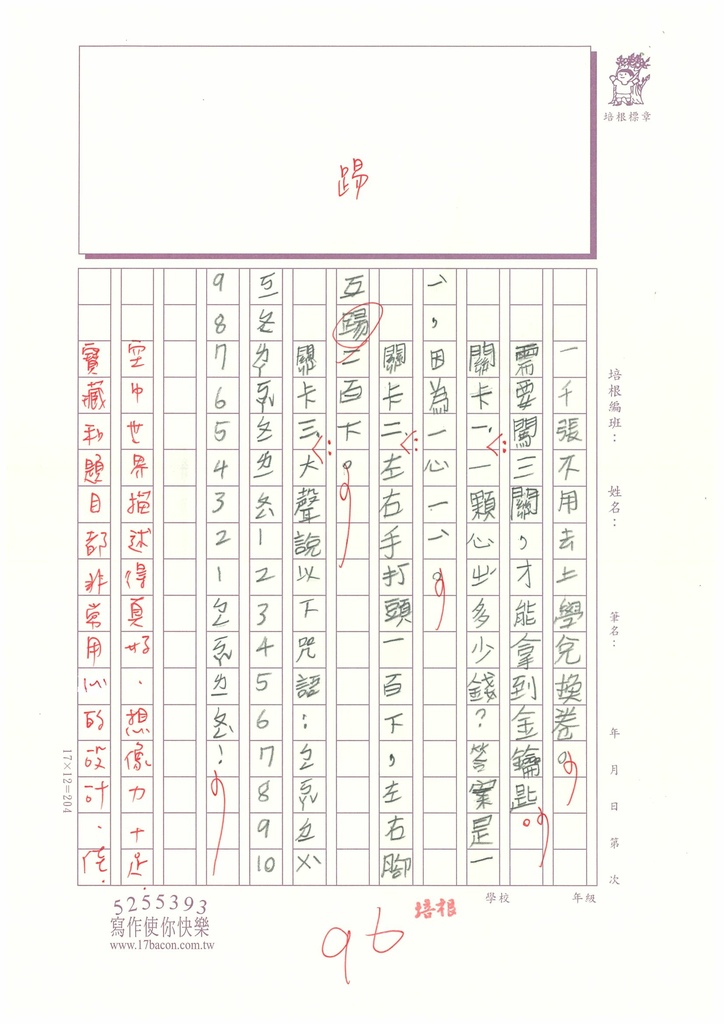 踢
培根標章
培根編班：
姓名：
筆名：
年 月 日 第 次
一千張不用去上學兌換卷。
需要闖三關，才能拿到金鑰匙。
關卡一：一顆心出多少錢？答案是一
ㄟ，因為一心一ㄟ。
關卡二：左右手打頭一百下，左右腳
互踢二百下。
關卡三：大聲說以下咒語：
1 2 3 4 5 6 7 8 9 10
9 8 7 6 5 4 3 2 1
空中世界描述得真好．想像力十足．
寶藏和題目都非常用心的設計．佳．
17×12=204
學校
年級
5255393
寫作使你快樂
www.17bacon.com.tw
培根
96